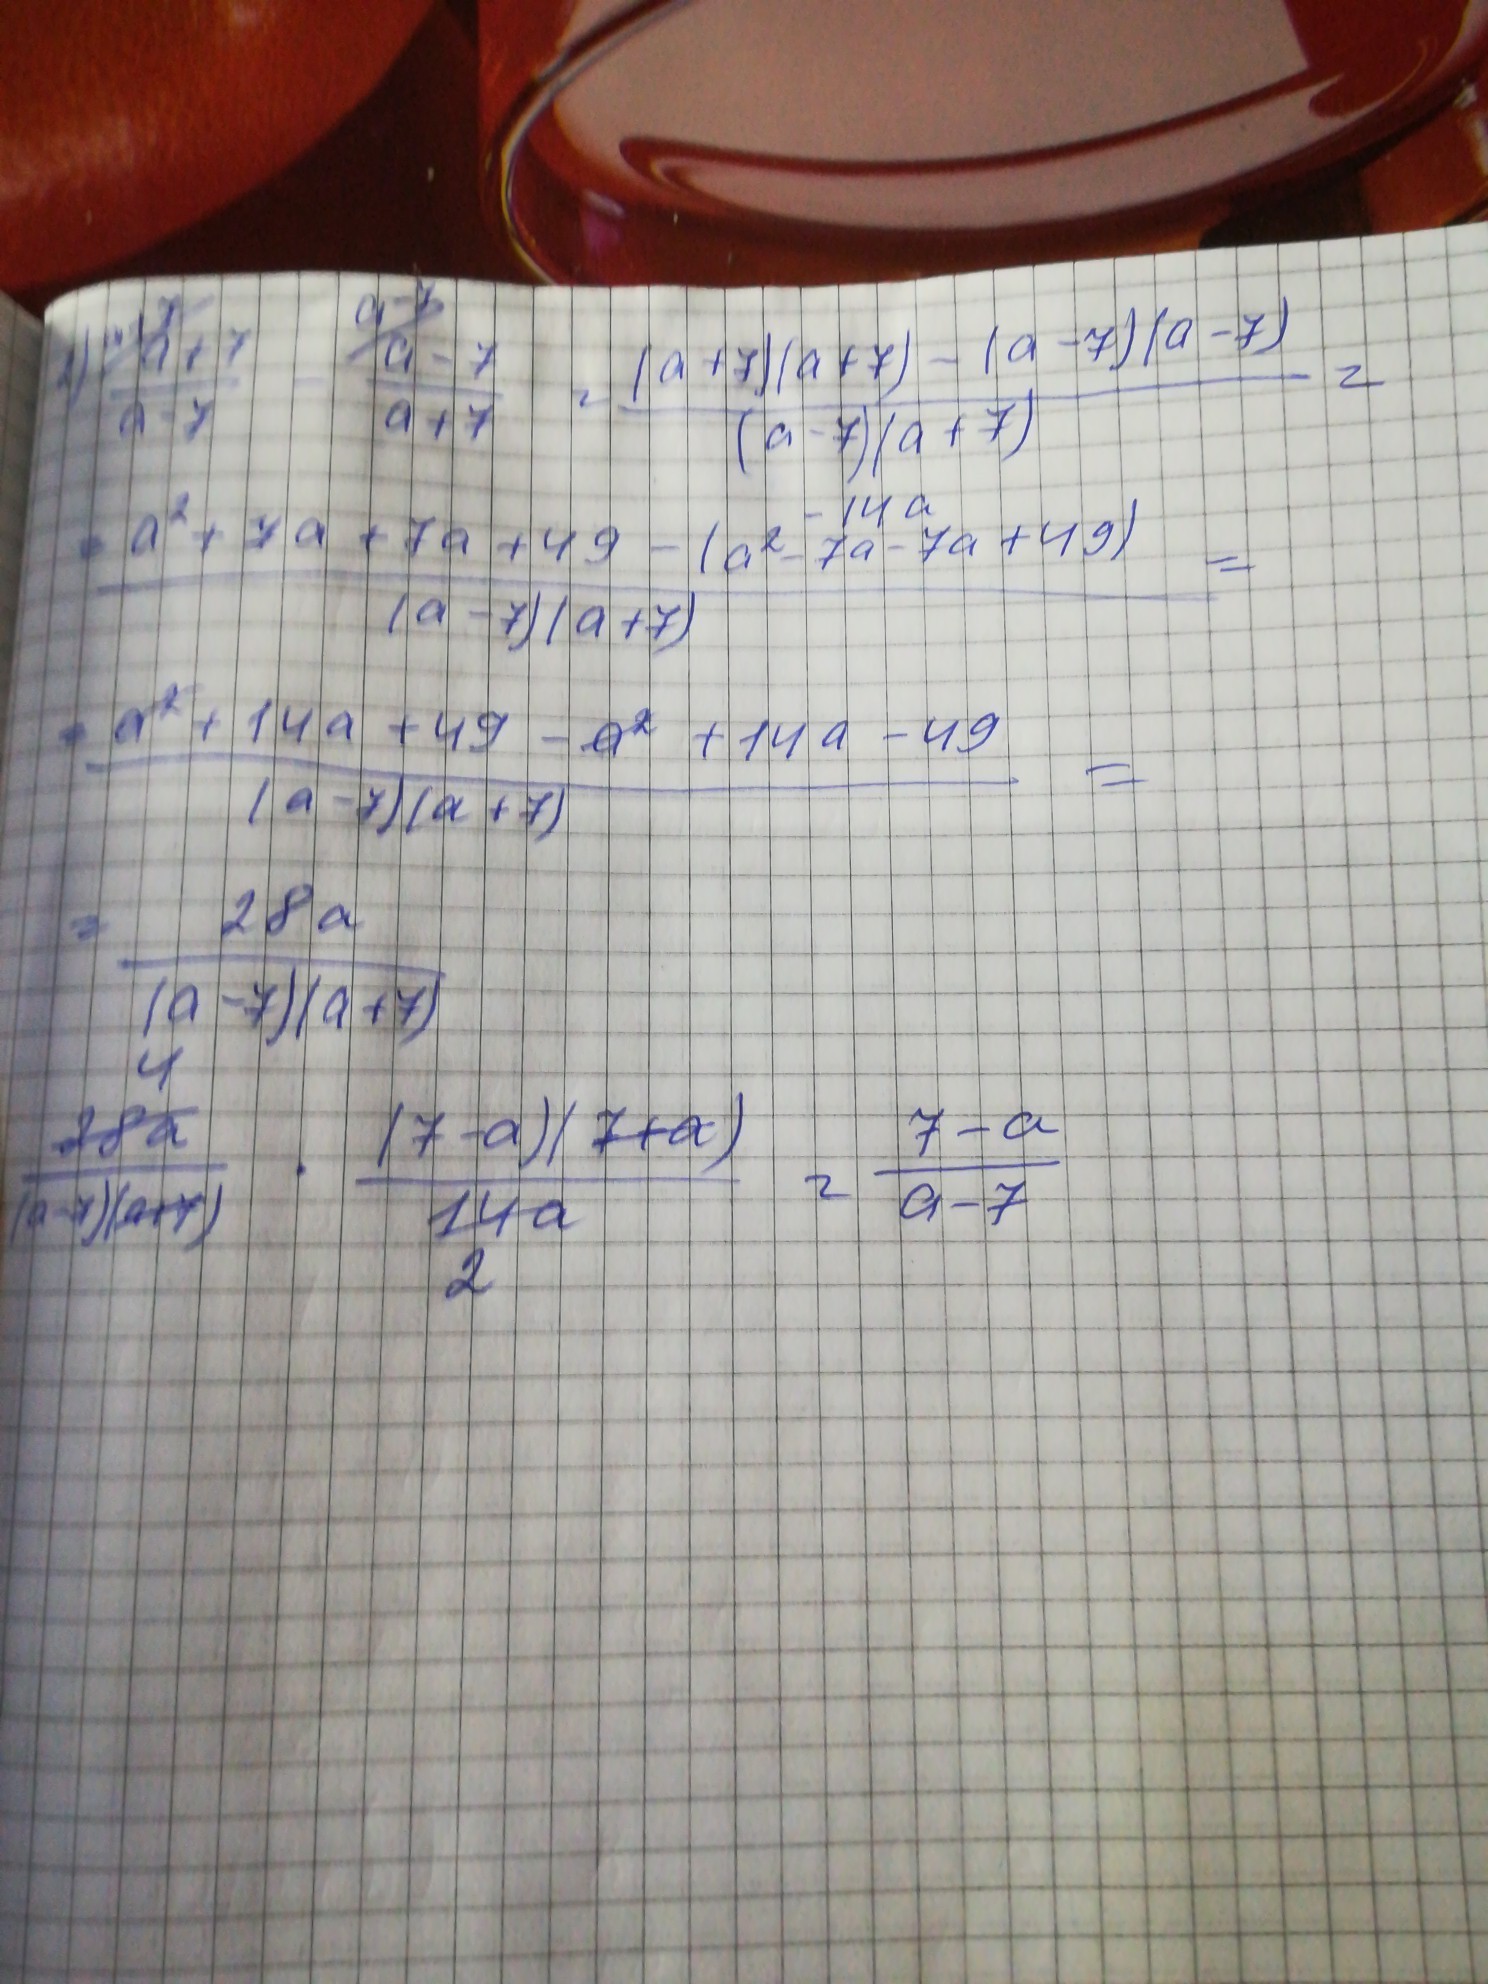 1) a+7/a-7 - a-7/a+7 = (a+7)(a+7)-(a-7)(a-7)/(a-7)(a+7) =
= a²+7a+7a+49-(a²-7a-7a+49)/(a-7)(a+7) =
-14a
= a²+14a+49-a²+14a-49/(a-7)(a+7) =
= 28a/(a-7)(a+7)
4
28a/(a-7)(a+7) · (7-a)(7+a)/14a = 7-a/a-7
2